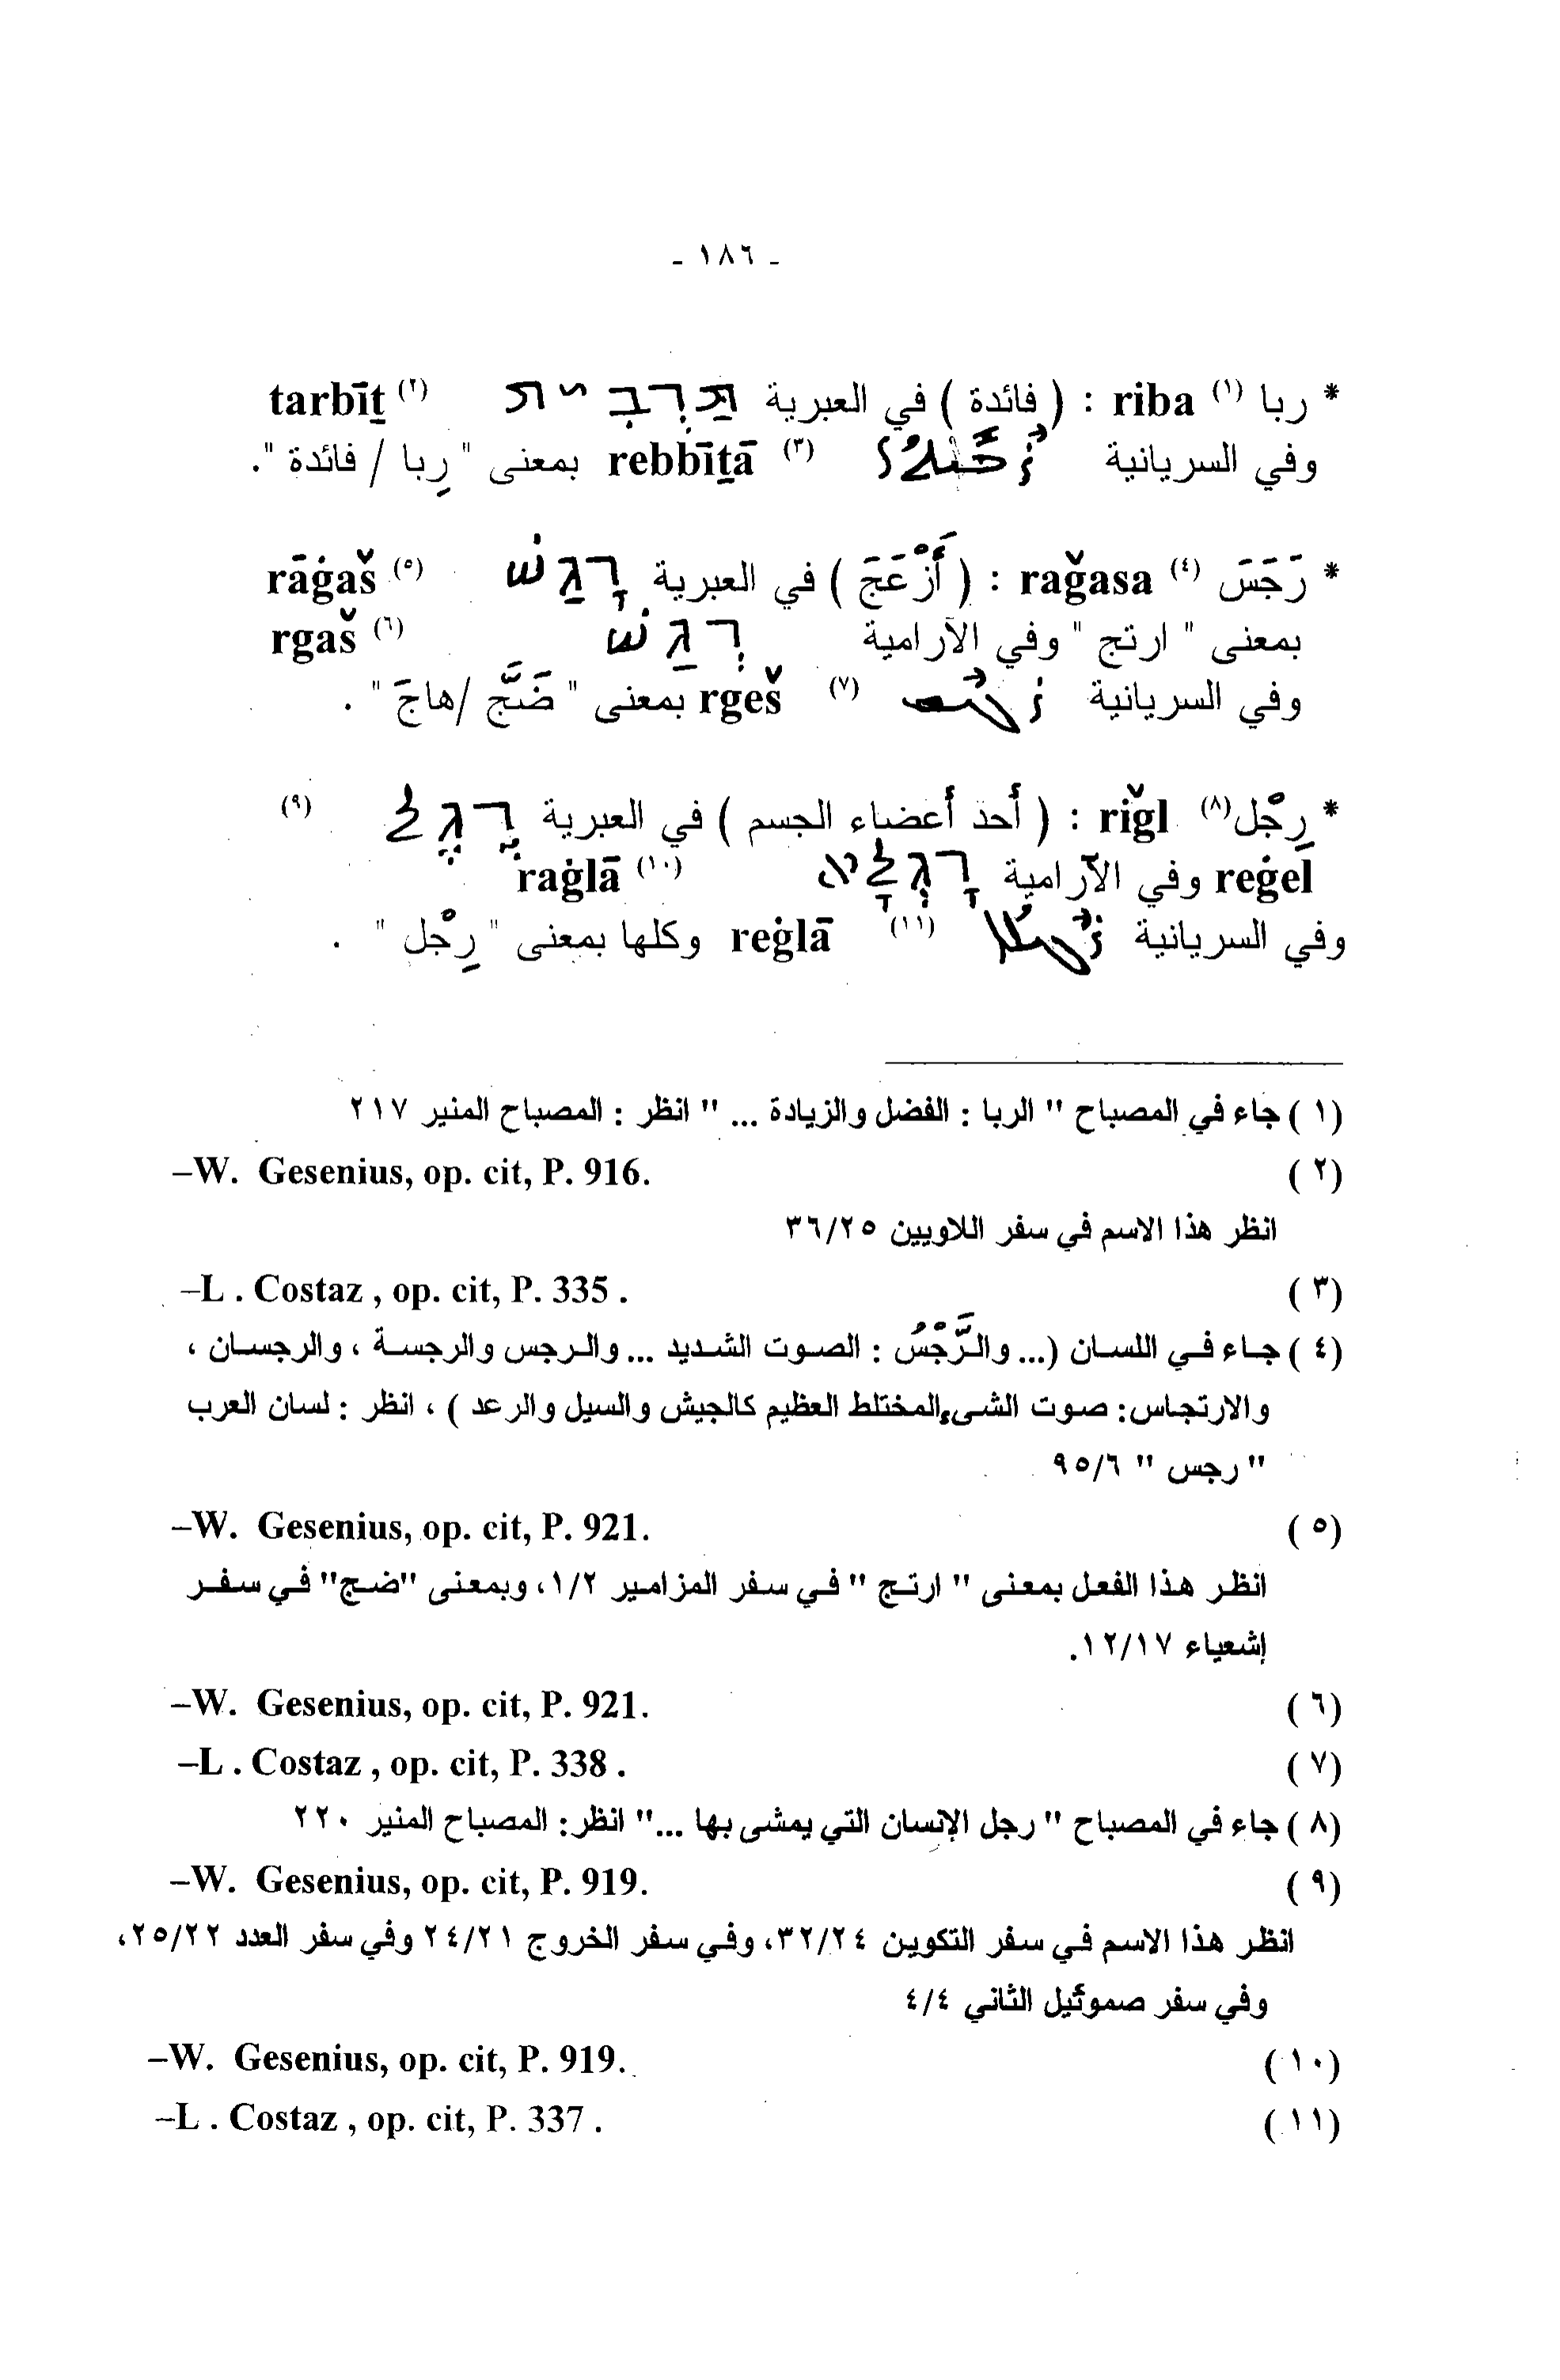 - ١٨٦ -
* ربا (١) riba : ( فائدة ) في العبرية תַּרְבִּית (٢) tarbīṯ
وفي السريانية ܪܶܒܺܝܬܳܐ (٣) rebbīṯā بمعنى " رِبا / فائدة ".
* رَجَسَ (٤) rağasa : ( أَزْعَجَ ) في العبرية רָגַשׁ (٥) rāġaš
بمعنى " ارتج " وفي الآرامية רְגַשׁ (٦) rgaš
وفي السريانية ܪܓܶܫ (٧) rgeš بمعنى " ضَجَّ /هاجَ " .
* رِجْل(٨) riğl : ( أحد أعضاء الجسم ) في العبرية רֶגֶל (٩)
reġel وفي الآرامية רַגְלָא (١٠) raġlā
وفي السريانية ܪܶܓܠܳܐ (١١) reġlā وكلها بمعنى " رِجْل " .
(١) جاء في المصباح " الربا : الفضل والزيادة ... " انظر : المصباح المنير ٢١٧
(٢) –W. Gesenius, op. cit, P. 916.
انظر هذا الاسم في سفر اللاويين ٣٦/٢٥
(٣) –L . Costaz , op. cit, P. 335 .
(٤) جاء في اللسان (... والرَّجْسُ : الصوت الشديد ... والرجس والرجسة ، والرجسان ،
والارتجاس: صوت الشيء المختلط العظيم كالجيش والسيل والرعد ) ، انظر : لسان العرب
" رجس " ٩٥/٦
(٥) –W. Gesenius, op. cit, P. 921.
انظر هذا الفعل بمعنى " ارتج " في سفر المزامير ١/٢، وبمعنى "ضج" في سفر
إشعياء ١٢/١٧.
(٦) –W. Gesenius, op. cit, P. 921.
(٧) –L . Costaz , op. cit, P. 338 .
(٨) جاء في المصباح " رجل الإنسان التي يمشى بها ..." انظر: المصباح المنير ٢٢٠
(٩) –W. Gesenius, op. cit, P. 919.
انظر هذا الاسم في سفر التكوين ٣٢/٢٤، وفي سفر الخروج ٢٤/٢١ وفي سفر العدد ٢٥/٢٢،
وفي سفر صموئيل الثاني ٤/٤
(١٠) –W. Gesenius, op. cit, P. 919.
(١١) –L . Costaz , op. cit, P. 337 .